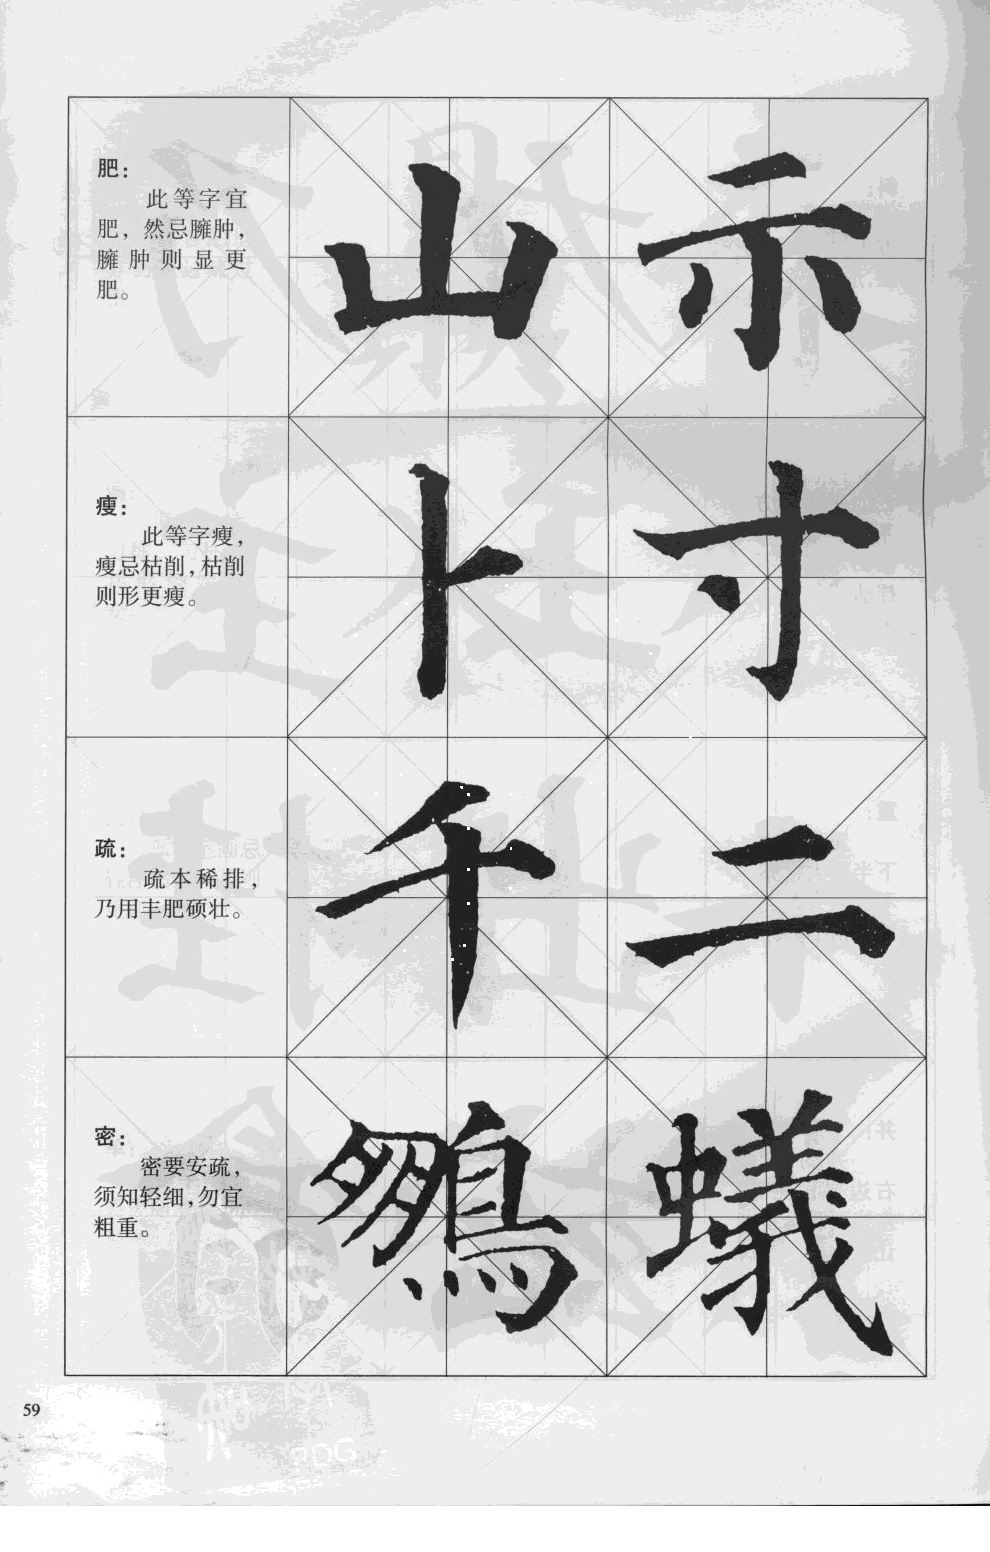 肥：
此等字宜
肥，然忌臃肿，
臃肿则显更
肥。
山 示
瘦：
此等字瘦，
瘦忌枯削，枯削
则形更瘦。
卜 寸
疏：
疏本稀排，
乃用丰肥硕壮。
千 二
密：
密要安疏，
须知轻细，勿宜
粗重。
蟻
59